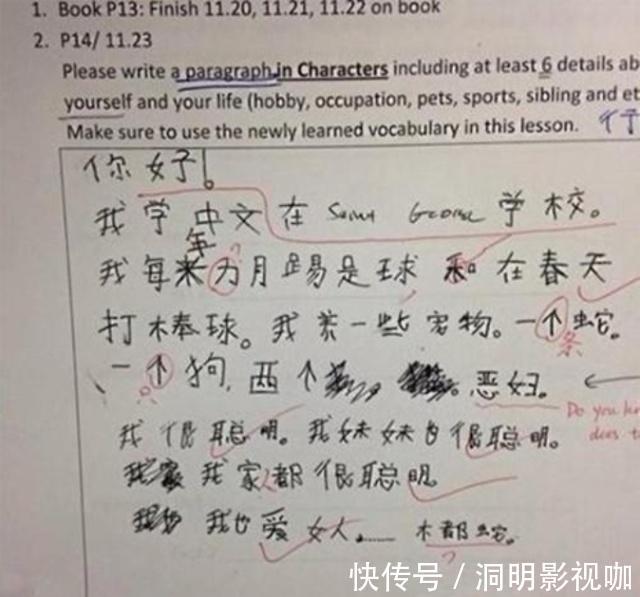 1. Book P13: Finish 11.20, 11.21, 11.22 on book
2. P14/ 11.23
Please write a paragraph in Characters including at least 6 details ab
yourself and your life (hobby, occupation, pets, sports, sibling and et
Make sure to use the newly learned vocabulary in this lesson.
你好!。
我学中文在 George 学校。
年
我每来为月踢是球和在春天
打棒球。我养一些宠物。一个蛇。
条
一个狗,两个 恶妇。
Do you
does
我很聪明。我妹妹也很聪明。
我家都很聪明。
我也爱女人…… 木都蛇。
快传号/洞明影视咖